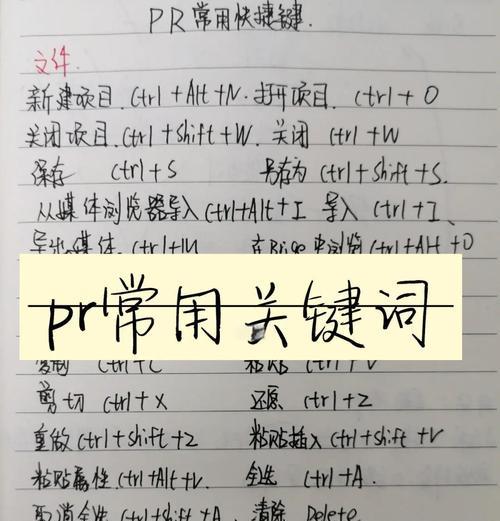 PR常用快捷键.
文件.
新建项目.Ctrl+Alt+N.打开项目. Ctrl+O
关闭项目.Ctrl+Shift+W. 关闭 Ctrl+W
保存 Ctrl+S 另存为 Ctrl+Shift+S.
从媒体浏览器导入Ctrl+Alt+I 导入 Ctrl+I、
导出媒体. Ctrl+M 在Brige中浏览Ctrl+Alt+O
pr常用关键词
复制 Ctrl+C 粘贴 Ctrl+V
剪切 Ctrl+X 还原 Ctrl+Z
重做Ctrl+Shift+Z 粘贴插入Ctrl+Shift+V
粘贴属性.Ctrl+Alt+V. 全选 Ctrl+A.
取消全选 Ctrl+Shift+A. 清除 Delete.